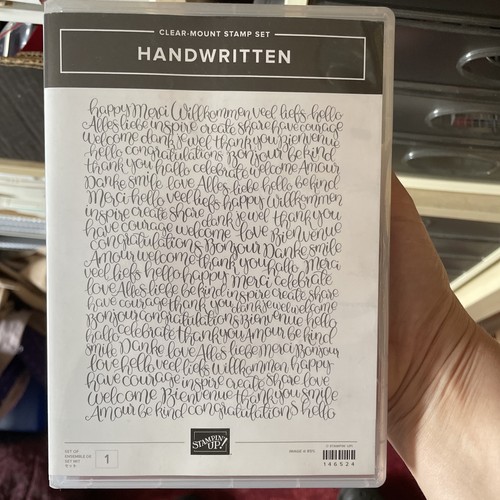 CLEAR-MOUNT STAMP SET
HANDWRITTEN
happy Merci Willkommen veel liefs hello
Alles liebe inspire create share have courage
welcome dank je wel thank you Bienvenue
hello congratulations Bonjour be kind
thank you hallo celebrate welcome Amour
Danke smile love Alles liebe hello be kind
Merci hello veel liefs happy Willkommen
inspire create share dank je wel thank you
have courage welcome love Bienvenue
congratulations Bonjour Danke smile
Amour welcome thank you hallo Merci
veel liefs hello happy Merci celebrate
love Alles liebe be kind inspire create share
have courage thank you dank je wel welcome
Bonjour congratulations Bienvenue hello
hallo celebrate thank you Amour be kind
smile Danke love Alles liebe Merci Bonjour
love hello veel liefs Willkommen happy
have courage inspire create share love
welcome Bienvenue thank you smile
Amour be kind congratulations hello
SET OF
ENSEMBLE DE
SET MIT
1
STAMPIN' UP!
© STAMPIN' UP!
146524